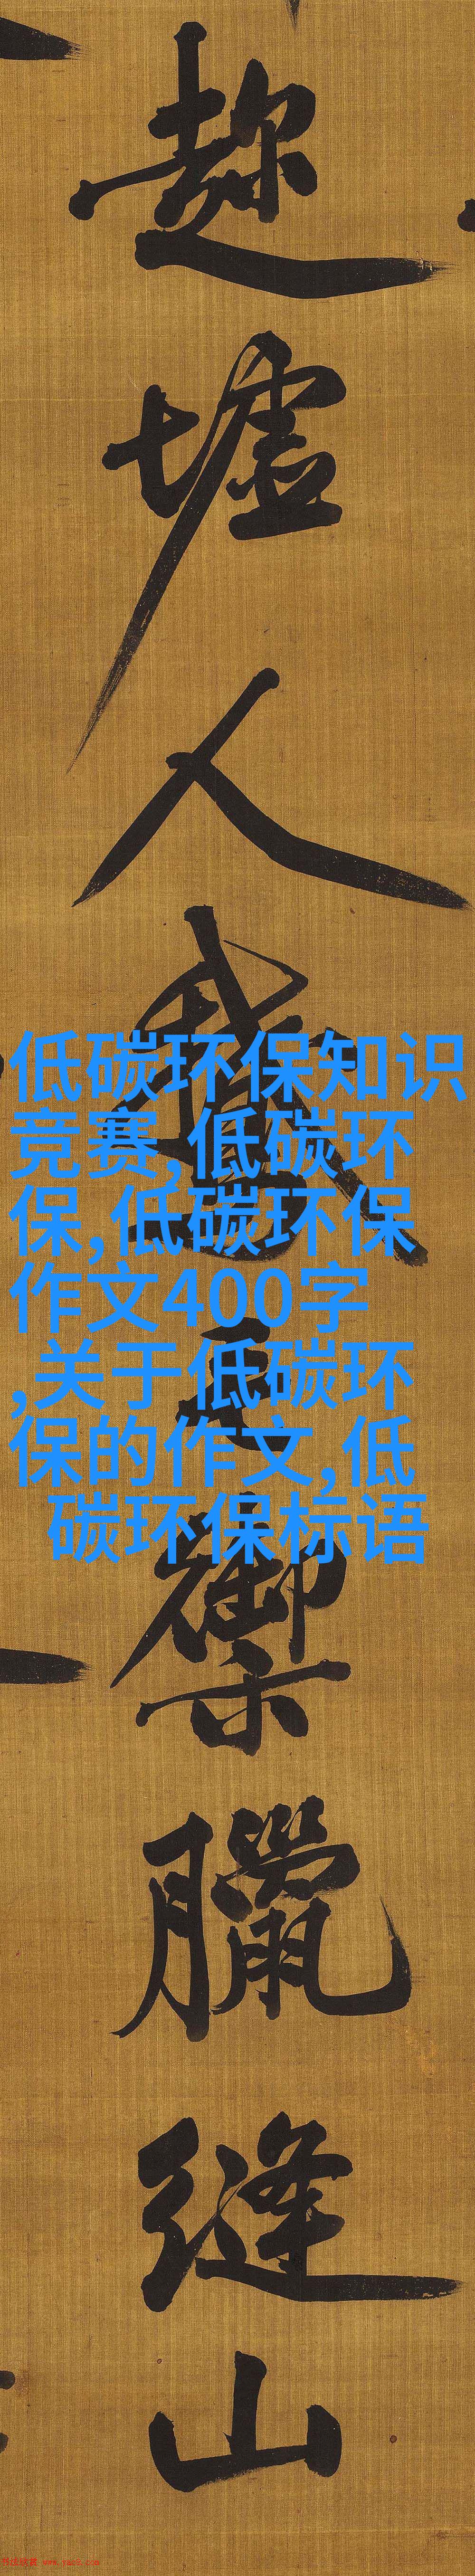 趂墟人鵞毛禦臘縫山
低碳环保知识
竞赛,低碳环
保,低碳环保
作文400字
,关于低碳环
保的作文,低
碳环保标语